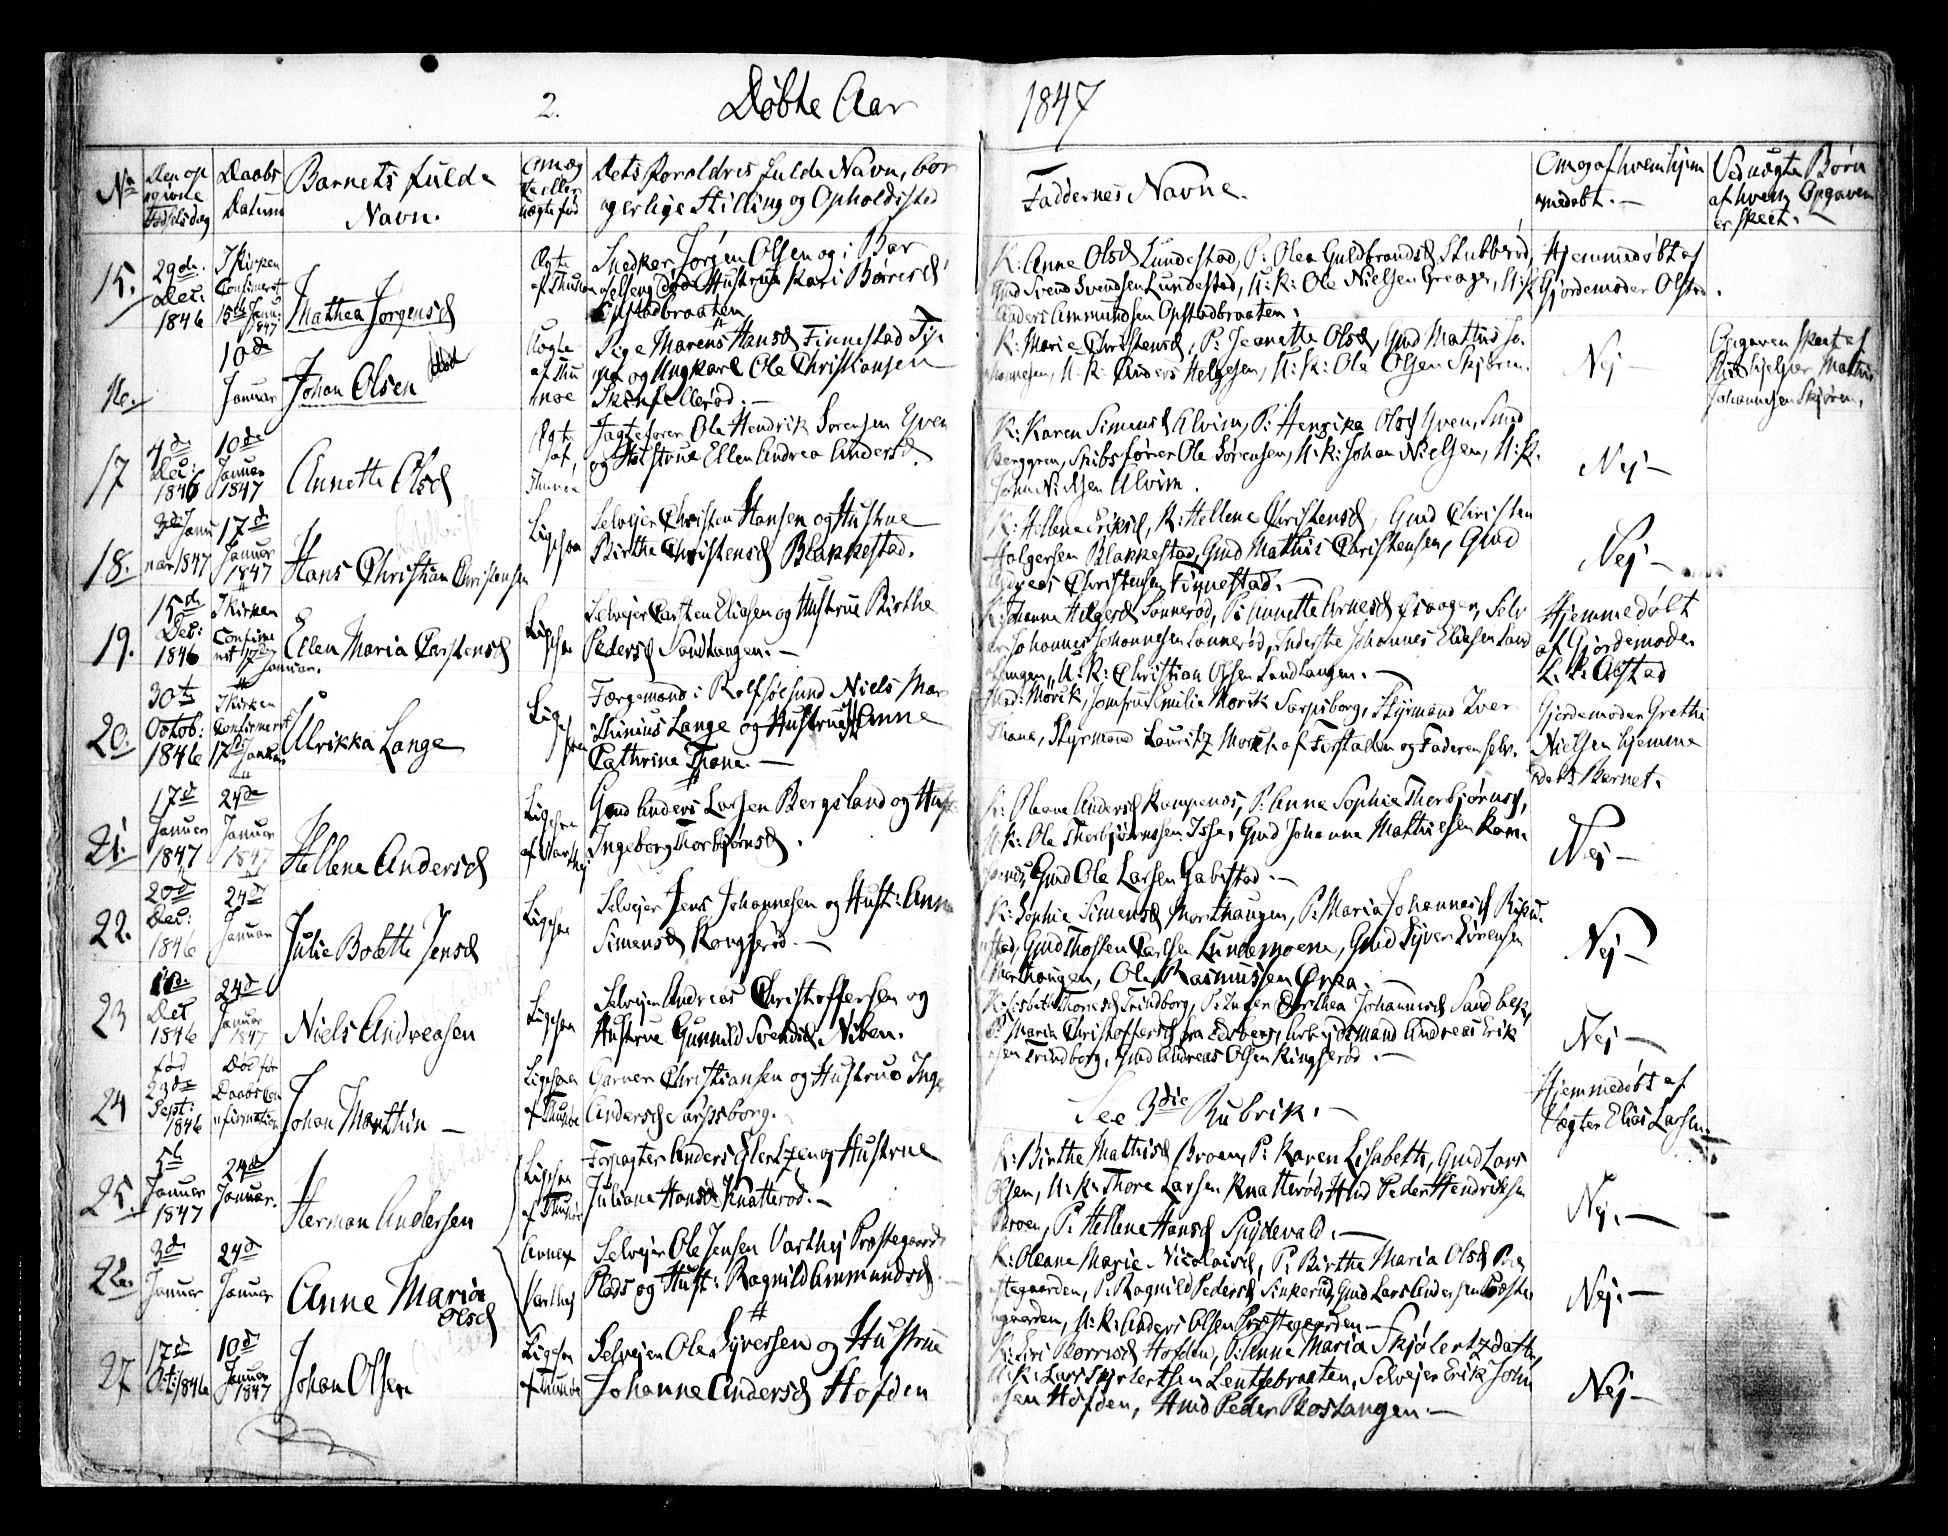 2.
Døbte Aar
1847
No
Den op
givne
Fødselsdag
Daabs
Datum
Barnets fulde
Navn.
om æg
te eller
uægte fød
Dets Forældres fulde Navn, bor
gerlige Stilling og Opholdssted
Faddernes Navne.
Om og af hvem hjem
medøbt. —
Ved uægte Børn
af hvem Opgaven
er skeet.
15.
29de
Dec:
1846
I Kirken
Confirmeret
15de Janu:
1847
Mathea Jørgensd
Ægte
Snedker Jørgen Olsen og i Bar
Hustrue Kari Børresd
Opstadbraaten
K: Anne Olsd Lundestad, P: Olea Guldbrandsd Stubberød,
Gmd Svend Svendsen Lundestad, U: K: Ole Nielsen Greager, U: K:
Anders Ammundsen Opstadbraaten.
Hjemmedøbt af
Gjordemoder Olstad.
16.
10de
Januar
Johan Olsen
død
Uægte
af Thu
noe
Pige Maren Hansd Finnestad
og Ungkarl Ole Christiansen
K: Marie Christensd, P: Jeanette Olsd, Gmd Mathis Jo
hannesen, U: K: Anders Helgesen, U: K: Ole Olsen Skjøren.
Nej —
Opgaven skeet af
Mathis
Johannesen Skjøren,
17
4de
Dec:
1846
10de
Januar
1847
Annette Olsd
Ægte
af
Thunøe
Jagtefører Ole Hendrik Sørensen Yven
og Hustrue Ellen Andrea Andersd.
K: Karen Simensd Alvim, P: Henrika Olsd Yven, Smed
Berggren, Skibsfører Ole Sørensen, U: K: Johan Nielsen, U: K.
John Nielsen Alvim.
Nej —
18.
3de Janu
uar 1847
17de
Januar
1847
Hans Christian Christensen
Ligesaa
Selvejer Christen Hansen og Hustrue
Birthe Christensd Blakkestad.
K: Hellene Eriksd, K: Hellene Christensd, Gmd Christen
Holgersen Blakkestad, Gmd Mathis Christensen, Gmd
Andreas Christensen Finnestad. —
Nej —
19.
15de
Dec:
1846
I Kirken
Confirme
ret 17de
Januar.
Ellen Maria Carstensd
Ligesaa
Selvejer Carsten Eliasen og Hustrue Birthe
Pedersd Sandtangen. —
K: Johanne Helgesd Sønnerød, P: Annette Arnesd Graager, Selv
ejer Johannes Johannesen Sønnerød, Inderste Johannes Eliasen Sand
tangen, U: K: Christian Olsen Sandtangen. —
Hjemmedøbt
af Gjordemoder
Olstad
20.
30te
Octob:
1846
I Kirken
Confirmeret
17de Januar
Ulrikka Lange
Ligesaa
Færgemand i Rolfsøesund Niels Mar
thinius Lange og Hustrue Anne
Cathrine Thane. —
Mad: Morck, Jomfrue Emilie Morck Sarpsborg, Styrmand Iver
Thane, Styrmand Lauritz Morck af Forstaden og Faderen selv.
Gjordemoder Grethe
Nielsen hjemme
døbt Barnet.
21.
17de
Januar
1847
24de
Januar
1847
Hellene Andersd
Ligesaa
af Varthej
Gmd Anders Larsen Bergsland og Hust
Ingeborg Thorbjørnsd.
K: Oleane Andersd Kampenes, P: Anne Sophie Thorbjørnsd,
U: K: Ole Thorbjørnsen Isse, Gmd Johannes Mathiesen Kam
penes, Gmd Ole Larsen Gabestad. —
Nej —
22.
20de
Dec:
1846
24de
Januar
Julie Boëtte Jensd
Ligesaa
Selvejer Jens Johannesen og Hust: Anne
Simensd Kongsrød. —
K: Sophie Simensd Morthaugen, P: Maria Johannesd
Gmd Thosten Carlsen Lundemoene, Gmd Syver Sørensen
Morthaugen, Ole Rasmussen —
Nej —
23
Dec
1846
24de
Januar
1847
Niels Andreasen
Ligesaa
Selvejer Andreas Christoffersen og
Hustrue Gunnild Svendsd Niben.
K: Lisbeth Thoresd Trindborg, P: Inger Dorthea Johannesd
P: Maria Christoffersd fra Edsberg, Arbejdsmand Andreas Erik
sen Trindborg, Gmd Andreas Olsen Kingserød. —
Nej —
24
fød
23de
Sept:
1846
Død før
Daabs Con
firmation
Johan Marthin —
Ligesaa
af Thunøe
Garver Christiansen og Hustrue Inge
Andersd Sarpsborg.
See 3die Rubrik. —
Hjemmedøbt af
Vægter Elias Larsen
25.
5te
Januar
1847
24de
Januar.
Herman Andersen
Ligesaa
af Thunøe
Forpagter Anders Glentzen og Hustrue
Juliane Hansd Knatterød. —
K: Birthe Mathisd Broen, P: Karen Lisabeth, Gmd Lars
Olsen, U: K: Thore Larsen Knatterød, Gmd Peder Hendriksen
Broen, P: Hellene Hansd Spydevald. —
Nej. —
26.
3de
Januar
24de
Januar
Anne Maria
Olsd
Annex
Varthej
Selvejer Ole Jensen Varthej Præstegaards
Plads og Hust: Ragnild Ammundsd. —
K: Oleane Marie Nicolaisd, P: Birthe Maria Olsd Præ
stegaarden, P: Ragnild Pedersd Sinkerud, Gmd Lars Andersen Præste
gaarden, U: K: Anders Olsen Præstegaarden. —
Nej. —
27
17de
Oct: 1846
10de
Januar
1847
Johan Olsen
Ligesaa
af Thunøe
Selvejer Ole Syversen og Hustrue
Johanne Andersd Hofden
K: Siri Børresd Hofden, P: Anne Maria Skjølertzdatter,
U: K: Lars Skjølertsen Lentsebraaten, Selvejer Erik John
sen Hofden, Gmd Peder Roslangen. —
Nej —